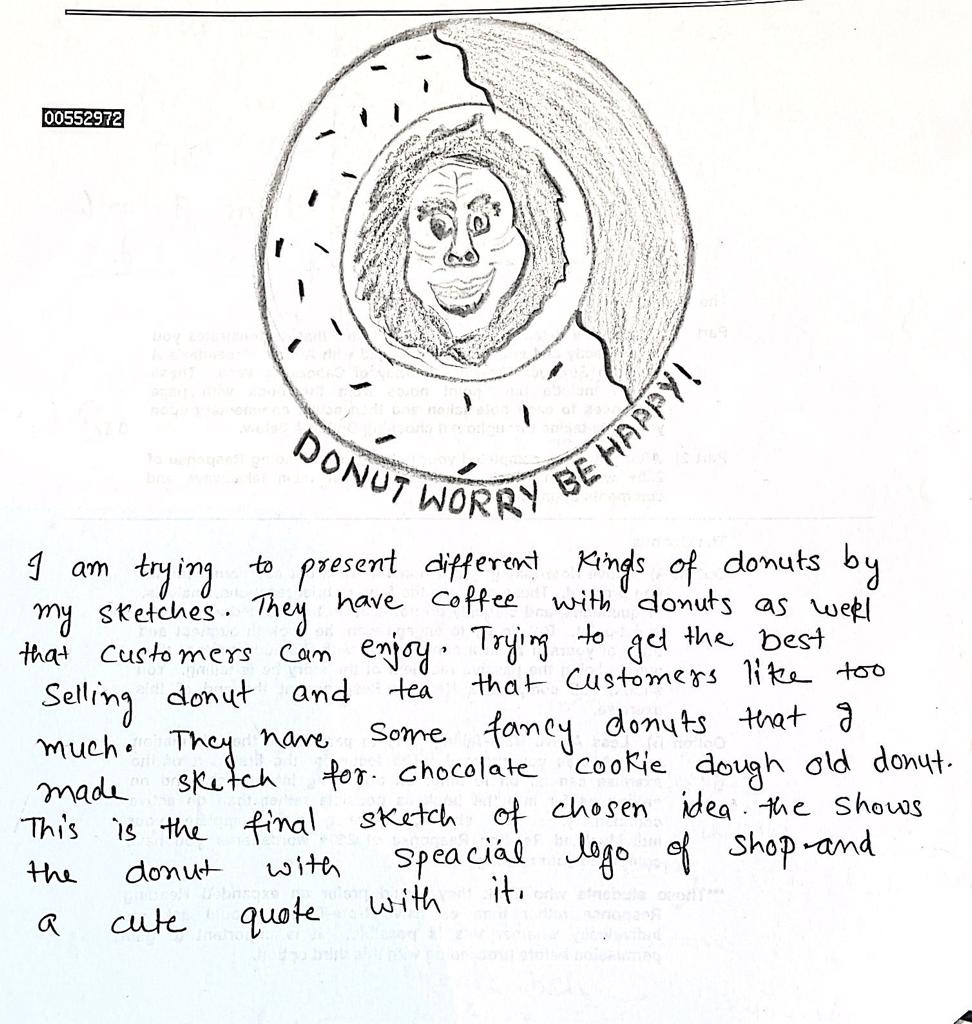 00552972
DONUT WORRY BE HAPPY!
I am trying to present different kinds of donuts by
my sketches. They have coffee with donuts as well
that customers can enjoy. Trying to get the best
Selling donut and tea that customers like too
much. They have some fancy donuts that I
made sketch for. chocolate cookie dough old donut.
This is the final sketch of chosen idea the shows
the donut with speacial logo of shop and
a cute quote with it.